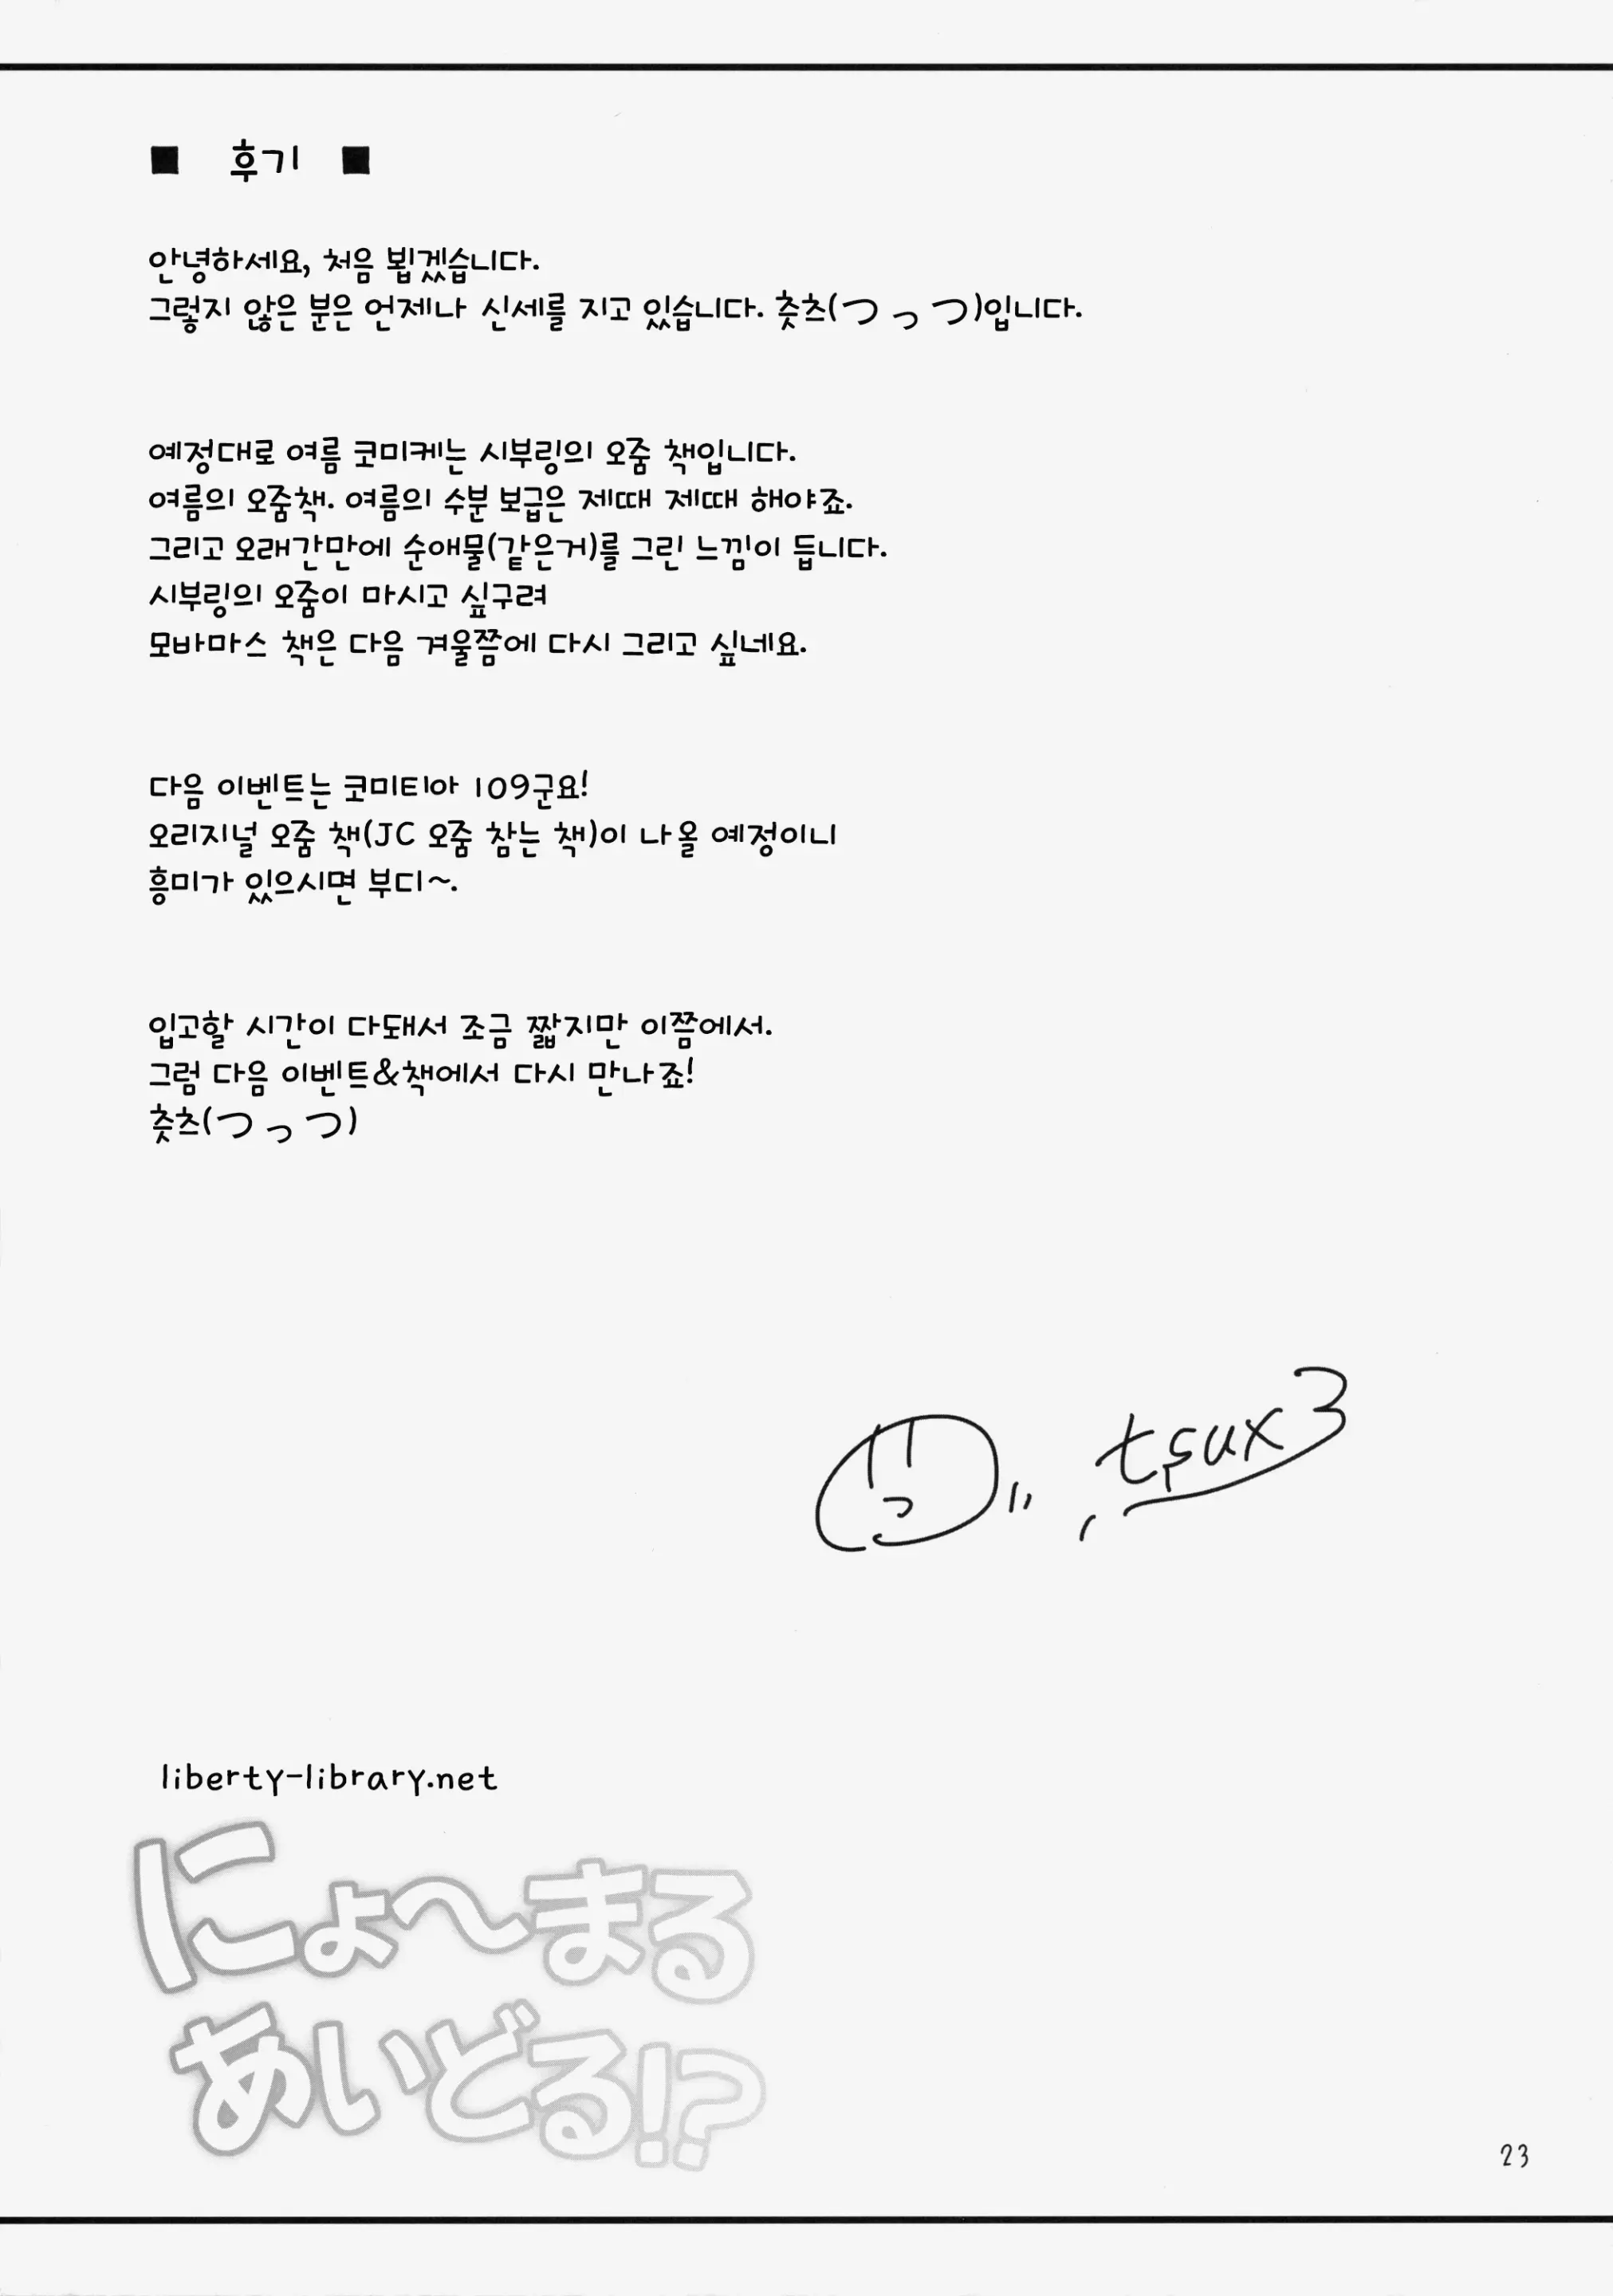 ■ 후기 ■
안녕하세요, 처음 뵙겠습니다.
그렇지 않은 분은 언제나 신세를 지고 있습니다. 츳츠(つっつ)입니다.
예정대로 여름 코미케는 시부링의 오줌 책입니다.
여름의 오줌책. 여름의 수분 보급은 제때 제때 해야죠.
그리고 오래간만에 순애물(같은거)를 그린 느낌이 듭니다.
시부링의 오줌이 마시고 싶구려
모바마스 책은 다음 겨울쯤에 다시 그리고 싶네요.
다음 이벤트는 코미티아 109군요!
오리지널 오줌 책(JC 오줌 참는 책)이 나올 예정이니
흥미가 있으시면 부디~.
입고할 시간이 다돼서 조금 짧지만 이쯤에서.
그럼 다음 이벤트&책에서 다시 만나죠!
츳츠(つっつ)
tsux3
liberty-library.net
にょ〜まる
あいどる!?
23